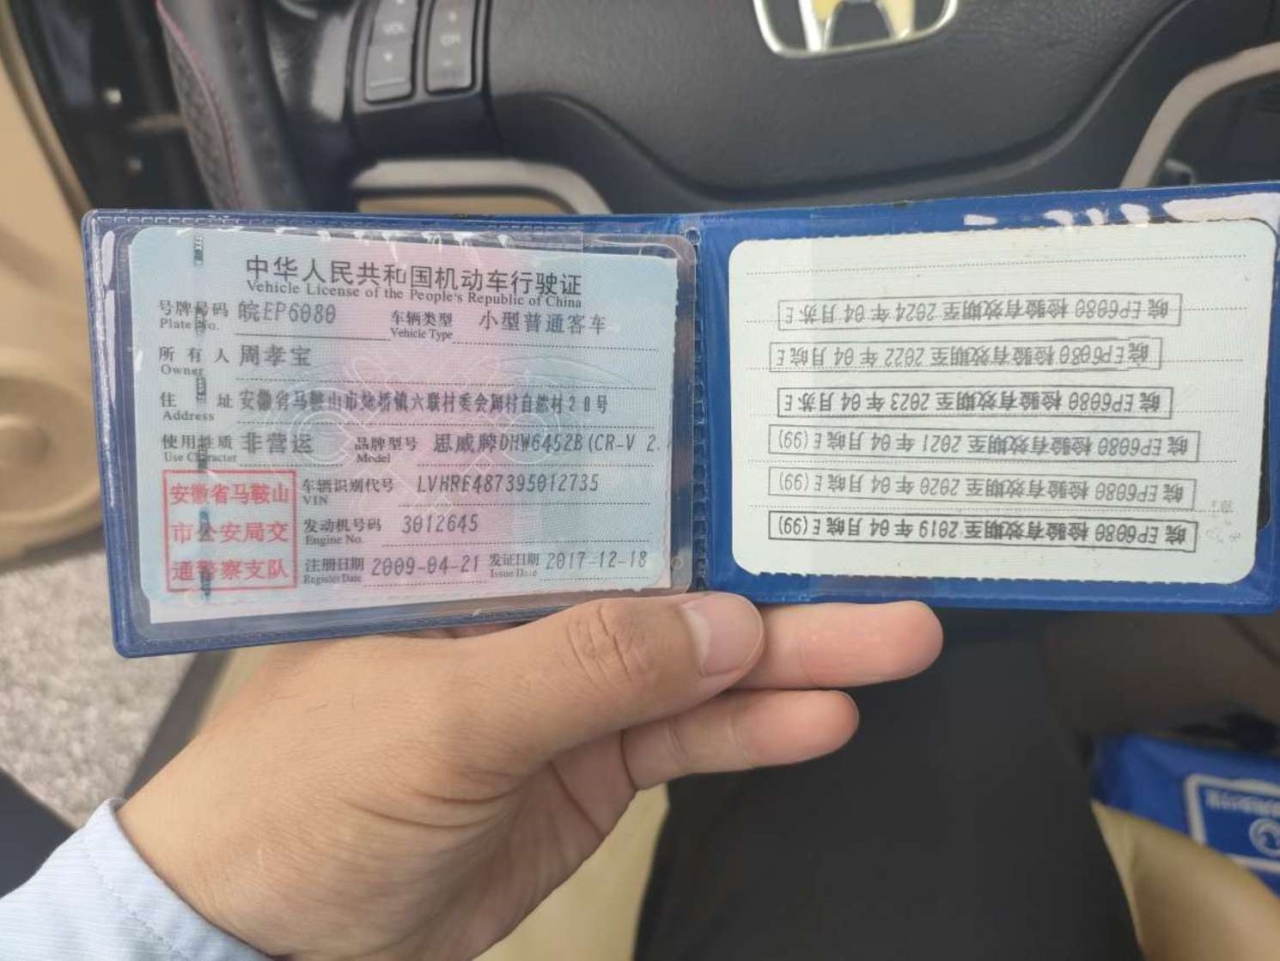 VOL
CH
中华人民共和国机动车行驶证
Vehicle License of the People's Republic of China
号牌号码 皖EP6080 车辆类型 小型普通客车
Plate No. Vehicle Type
所有人 周孝宝
Owner
住址 安徽省马鞍山市 桥镇六联村委会周村自然村20号
Address
使用性质 非营运 品牌型号 思威牌DHW6452B(CR-V 2.
Use Character Model
安徽省马鞍山
市公安局交
通警察支队
车辆识别代号 LVHRE487395012735
VIN
发动机号码 3012645
Engine No.
注册日期 2009-04-21 发证日期 2017-12-18
Register Date Issue Date
皖EP6080 检验有效期至 2024 年 04 月苏E
皖EP6080 检验有效期至 2022 年 04 月皖E
皖EP6080 检验有效期至 2023 年 04 月苏E
皖EP6080 检验有效期至 2021 年 04 月皖E(99)
皖EP6080 检验有效期至 2020 年 04 月皖E(99)
皖EP6080 检验有效期至 2019 年 04 月皖E(99)